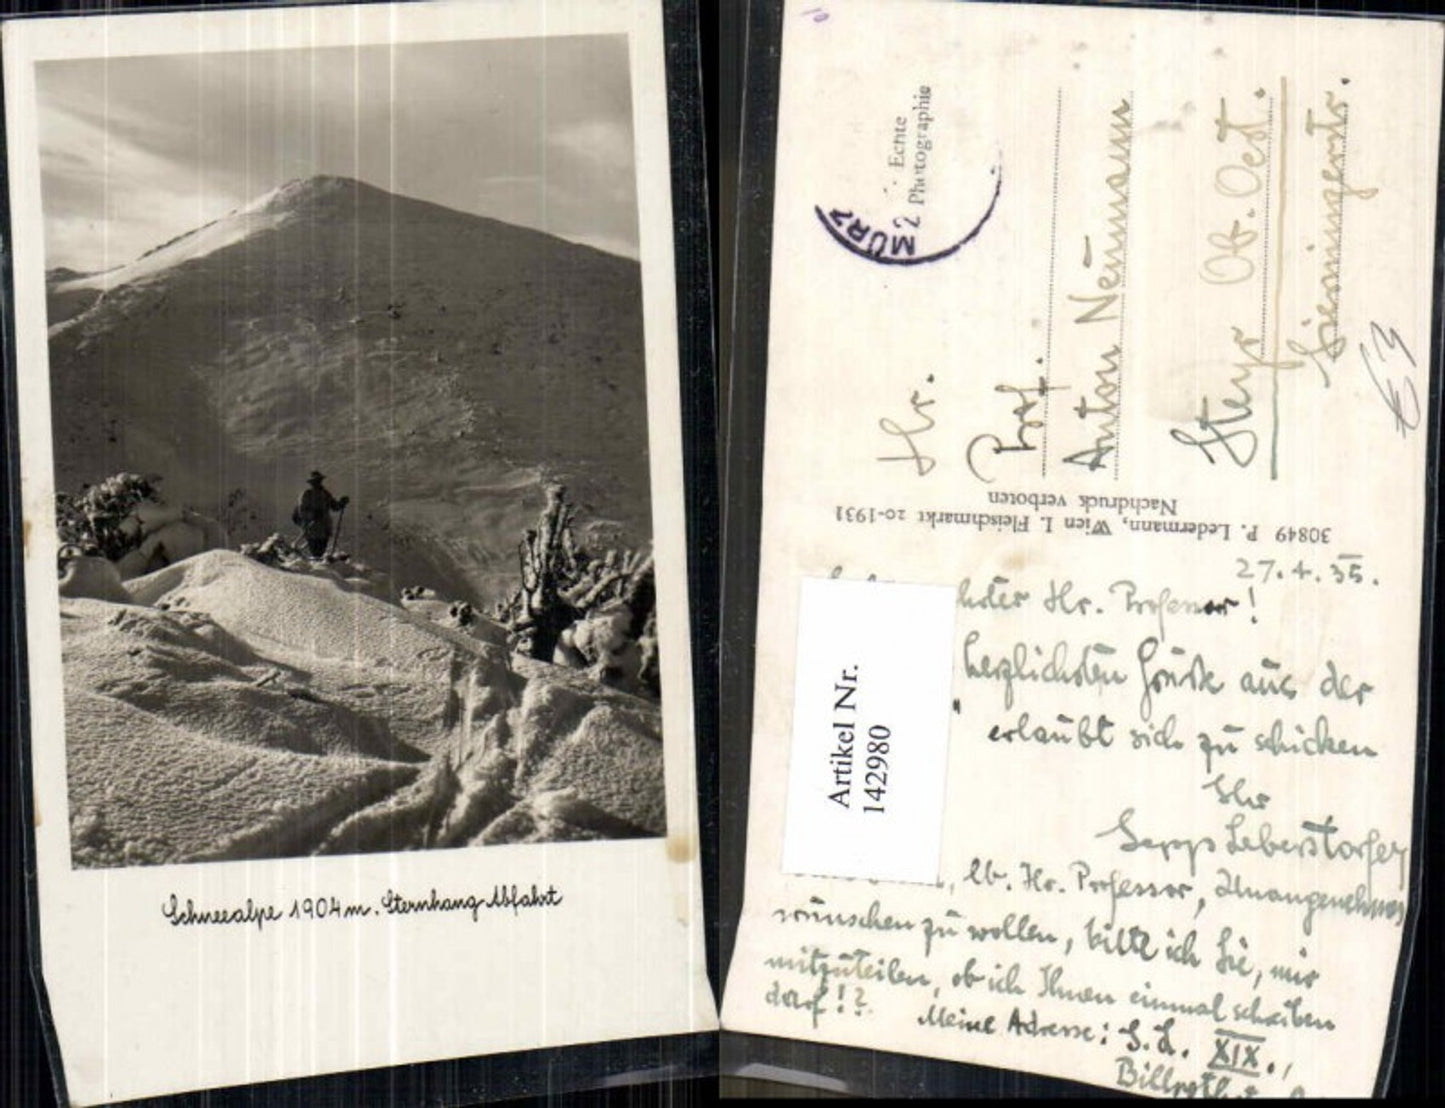 Schneealpe 1904 m. Sternhang-Abfahrt
Echte
Photographie
MÜRZ
2
Hr.
Prof.
Anton Neumann
Steyr Ob. Oest.
Sierningerstr.
€3
30849 P. Ledermann, Wien I. Fleischmarkt 20-1931
Nachdruck verboten
27.4.35.
Hr. Professor!
herzlichsten Grüße aus der
erlaubt sich zu schicken
Ihr
Sepp Leberstorfer
Artikel Nr.
142980
lb. Hr. Professor, Unangenehmes
wünschen zu wollen, bitte ich Sie, mir
mitzuteilen, ob ich Ihnen einmal schreiben
darf!?
Meine Adresse: S.L. XIX.,